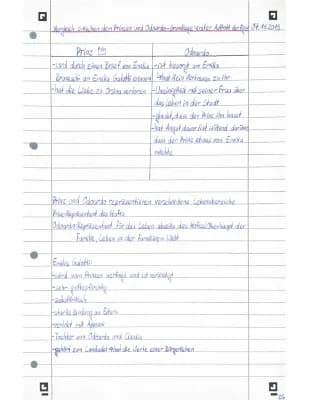 Vergleich zwischen den Prinzen und Odoardo - Grundlage: erster Auftritt der 04.11.2015
Prinz
Odoardo
- wird durch einen Brief von Emilia
- ist besorgt um Emilia
Bruneschi an Emilia Galotti erinnert
- hat kein Vertrauen zu ihr
- hat die Liebe zu Orsina verloren
- Uneinigkeit mit seiner Frau über
das Leben in der Stadt
- glaubt, dass der Prinz ihn hasst
- hat Angst davor bzw. wütend darüber,
dass der Prinz etwas von Emilia
möchte
Prinz und Odoardo repräsentieren verschiedene Lebensbereiche
Prinz: Repräsentant des Hofes
Odoardo: Repräsentant für das Leben abseits des Hofes, Oberhaupt der
Familie, Leben in der familiären Welt
Emilia Galotti:
- wird vom Prinzen verfolgt und ist verängstigt
- sehr gottesfürchtig
- selbstkritisch
- starke Bindung an Eltern
- verlobt mit Appiani
- Tochter von Odoardo und Claudia
- gehört zum Landadel, hat die Werte einer Bürgerlichen